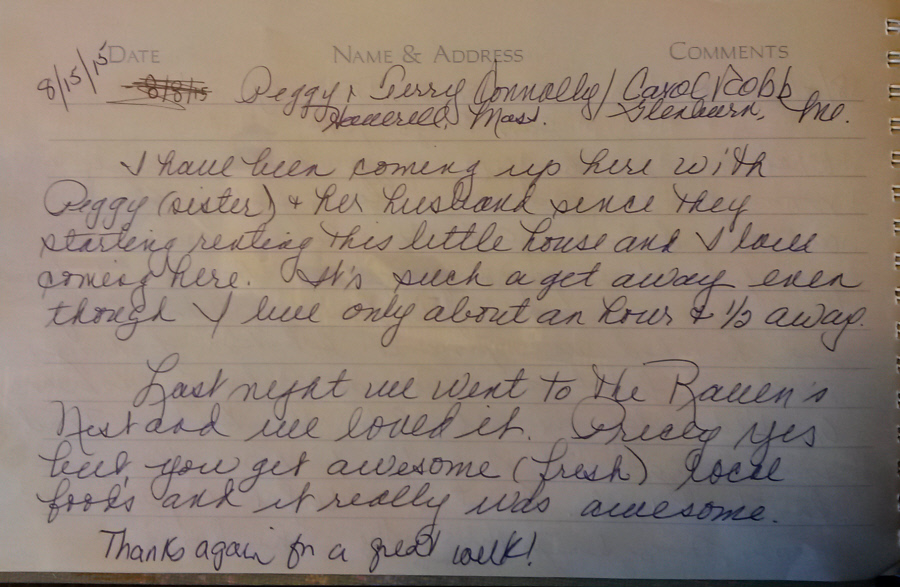 DATE NAME & ADDRESS COMMENTS
8/15/15 8/8/15 Peggy & Terry Connolly/ Carol Robb
Haverell, Mass. Glenburn, Me.
I have been coming up here with
Peggy (sister) & her husband since they
starting renting this little house and I love
coming here. It's such a get away even
though I live only about an hour & 1/2 away.
Last night we went to the Raven's
Nest and we loved it. Pricey yes
but you get awesome (fresh) local
foods and it really was awesome.
Thanks again for a great week!